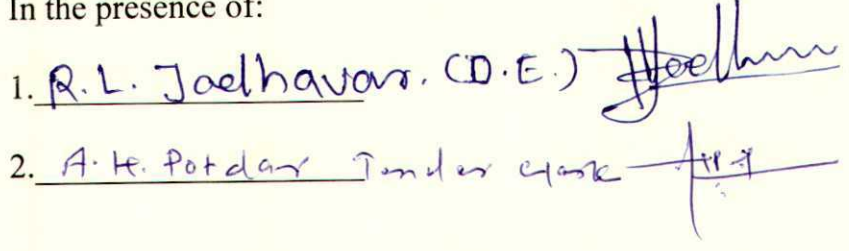 In the presence of:
1. R.L. Jadhavar. (D.E.)
2. A.H. Potdar Tender clerk